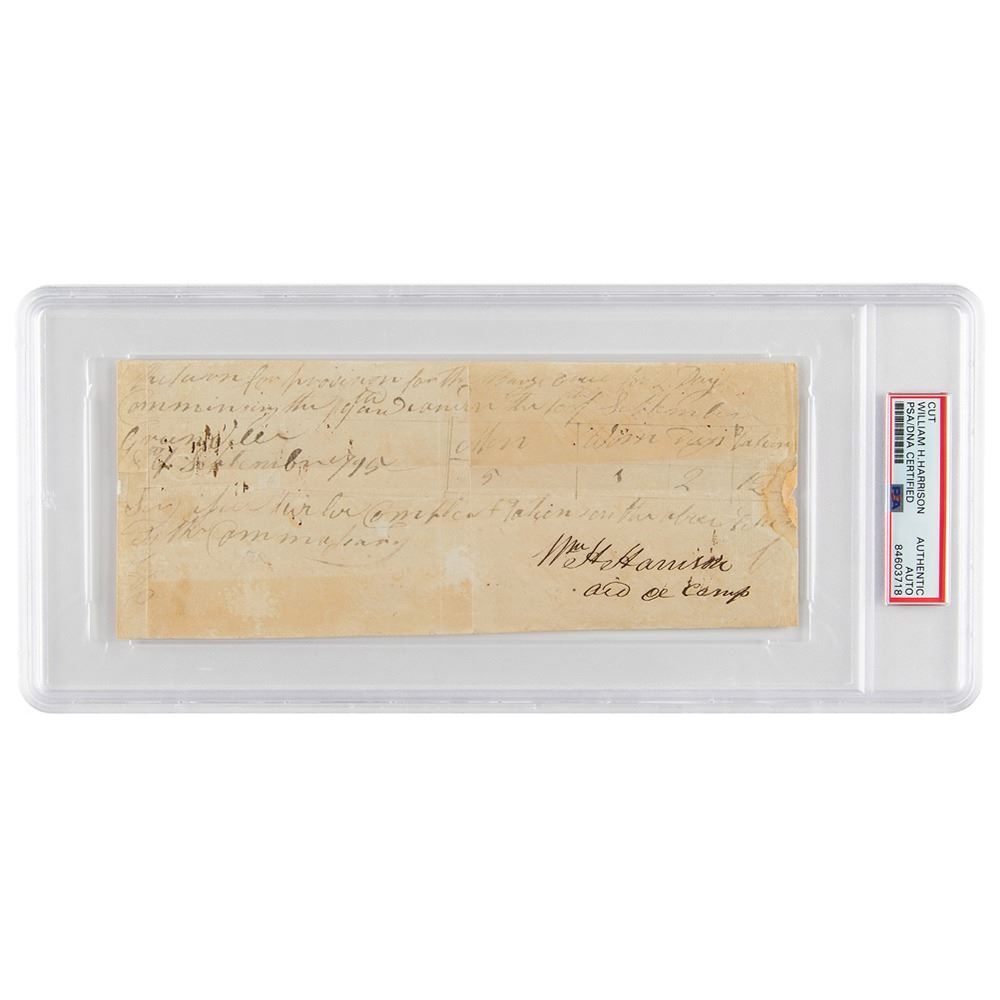 Return for provision for the for 2 Day
Commencing the 9th and ending the 10th of September
Greenville
September 1795
Men Wom Days Ration
5 1 2 12
twelve Compleat Rations on the above Return
Commassary
Wm H Harrison
aid de Camp
CUT
WILLIAM H. HARRISON
PSA/DNA CERTIFIED
AUTHENTIC
AUTO
84603718
PSA